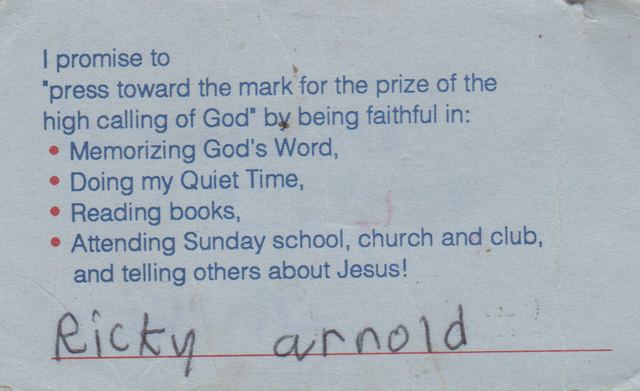 I promise to
"press toward the mark for the prize of the
high calling of God" by being faithful in:
• Memorizing God's Word,
• Doing my Quiet Time,
• Reading books,
• Attending Sunday school, church and club,
and telling others about Jesus!
Ricky arnold